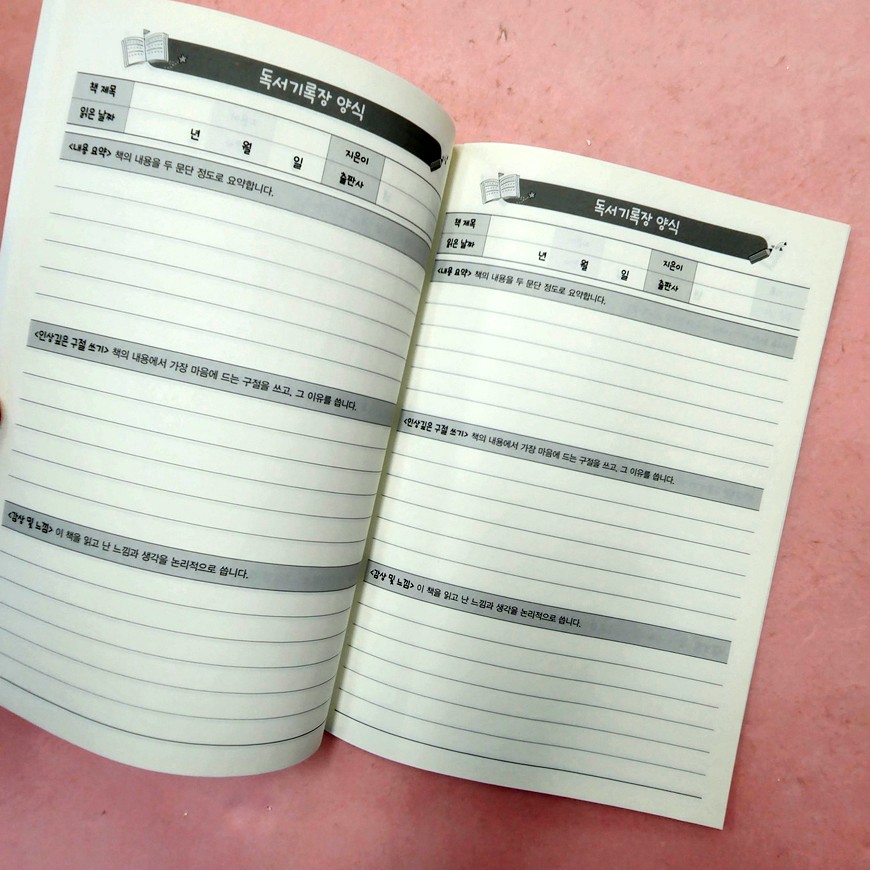 독서기록장 양식
책 제목
읽은 날짜 년 월 일 지은이
출판사
<내용 요약> 책의 내용을 두 문단 정도로 요약합니다.
<인상깊은 구절 쓰기> 책의 내용에서 가장 마음에 드는 구절을 쓰고, 그 이유를 씁니다.
<감상 및 느낌> 이 책을 읽고 난 느낌과 생각을 논리적으로 씁니다.
독서기록장 양식
책 제목
읽은 날짜 년 월 일 지은이
출판사
<내용 요약> 책의 내용을 두 문단 정도로 요약합니다.
<인상깊은 구절 쓰기> 책의 내용에서 가장 마음에 드는 구절을 쓰고, 그 이유를 씁니다.
<감상 및 느낌> 이 책을 읽고 난 느낌과 생각을 논리적으로 씁니다.